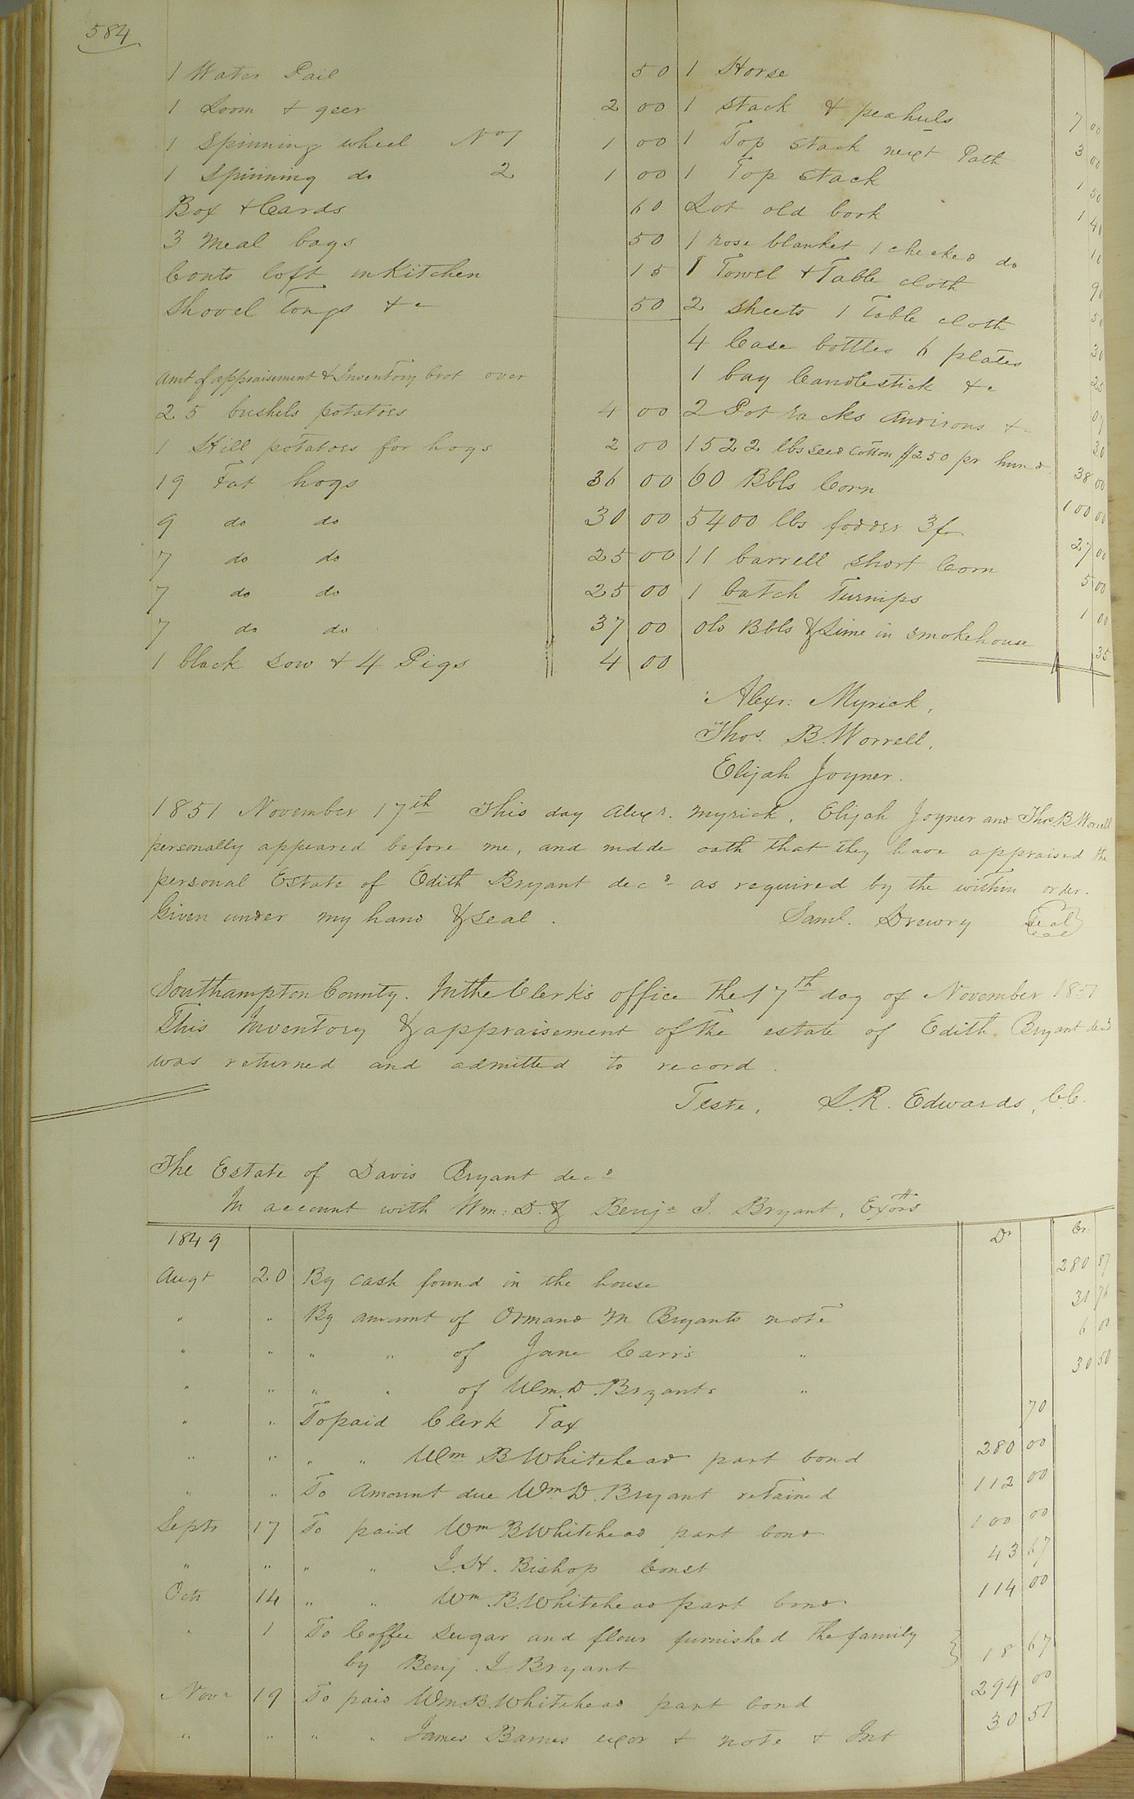 584
1 Water Pail 50
1 Loom & geer 2 00
1 Spinning wheel No 1 1 00
1 Spinning do 2 1 00
Box & Cards 60
3 Meal bags 50
loft in Kitchen 15
Shovel Tongs &c 50
Amt of appraisement & Inventory brot over
25 bushels potatoes 4 00
1 Hill potatoes for hogs 2 00
19 Fat hogs 36 00
9 do do 30 00
7 do do 25 00
7 do do 25 00
7 do do 37 00
1 black Sow & 4 Pigs 4 00
1 Horse 7 00
1 Stack & peahuls 3 00
1 Top Stack next Path 1 50
1 Top Stack 1 40
Lot old book 10
1 rose blanket 1 checked do 90
1 Towel & Table cloth 50
2 Sheets 1 Table cloth 30
4 Case bottles 6 plates 25
1 bag Candlestick &c
2 Pot racks Andirons &c 30
1522 lbs seed Cotton $2 50 pr hund 38 00
60 Bbls Corn 100 00
5400 lbs fodder 27 00
11 barrell short Corn 5 00
1 batch Turnips 1 00
old Bbls & Lime in Smokehouse 35
Alexr. Myrick.
Thos. B. Worrell.
Elijah Joyner.
1851 November 17th This day Alexr. Myrick, Elijah Joyner and Thos B Worrell
personally appeared before me, and made oath that they have appraised the
personal Estate of Edith Bryant decd as required by the within order.
Given under my hand & seal. Saml. Drewry Seal
Southampton County. In the Clerk's office the 17th day of November 1851
This Inventory & appraisement of the estate of Edith Bryant decd
was returned and admitted to record.
Teste, L. R. Edwards, C.C.
The Estate of Davis Bryant decd
In account with Wm: D. & Benjn J. Bryant, Exors
1849 Dr Cr
Augt 20 By cash found in the house 280 87
" " By amount of Ormand M Bryants note 31 76
" " " " of Jane Carr's " 6 00
" " " " of Wm. D. Bryants " 30 50
" " To paid Clerk Tax 70
" " " " Wm B Whitehead part bond 280 00
" " To Amount due Wm D. Bryant retained 112 00
Septr 17 To paid Wm B Whitehead part bond 100 00
" " " " J. H. Bishop Const 43 67
Octr 14 " " Wm B. Whitehead part bond 114 00
" 1 To Coffee Sugar and flour furnished the family
by Benj. J. Bryant 18 67
Novr 19 To paid Wm B. Whitehead part bond 294 00
" " " " James Barnes exor & note & Int 30 51